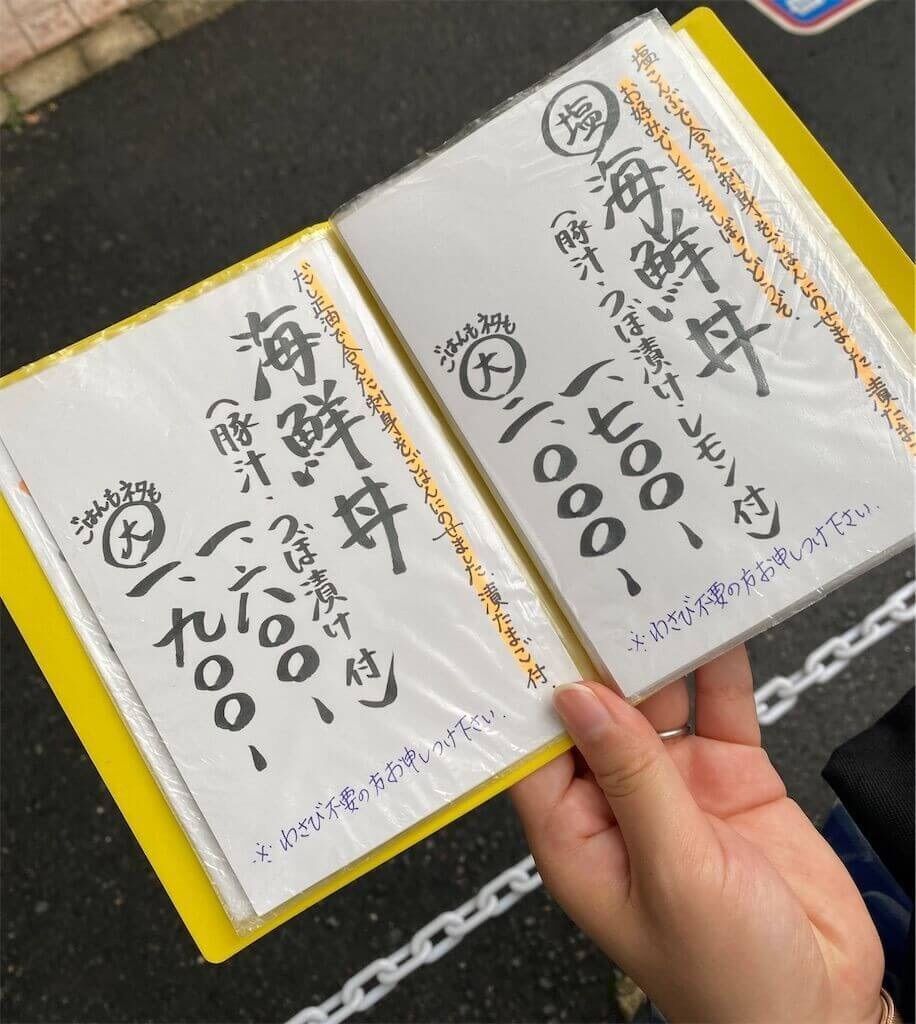 塩こんぶで合えた刺身をごはんにのせました。漬たまご
お好みでレモンをしぼってどうぞ。
塩 海鮮丼
(豚汁、つぼ漬け、レモン付)
一、七〇〇、
ごはんもネタも
大 二、〇〇〇、
※わさび不要の方お申しつけ下さい。
だし正油で合えた刺身をごはんにのせました。漬たまご付。
海鮮丼
(豚汁、つぼ漬け付)
一、六〇〇、
ごはんもネタも
大 一、九〇〇、
※わさび不要の方お申しつけ下さい。